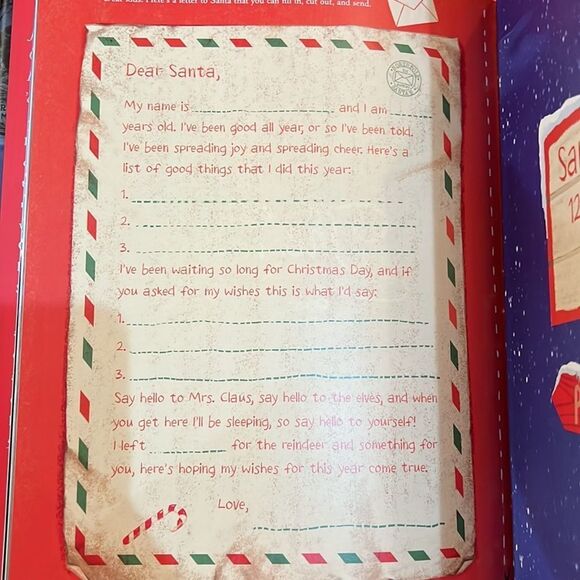 great kids. Here's a letter to Santa that you can fill in, cut out, and send.
Dear Santa,
My name is and I am
years old. I've been good all year, or so I've been told.
I've been spreading joy and spreading cheer. Here's a
list of good things that I did this year:
1.
2.
3.
I've been waiting so long for Christmas Day, and if
you asked for my wishes this is what I'd say:
1.
2.
3.
Say hello to Mrs. Claus, say hello to the elves, and when
you get here I'll be sleeping, so say hello to yourself!
I left for the reindeer and something for
you, here's hoping my wishes for this year come true.
Love,
Sa
12